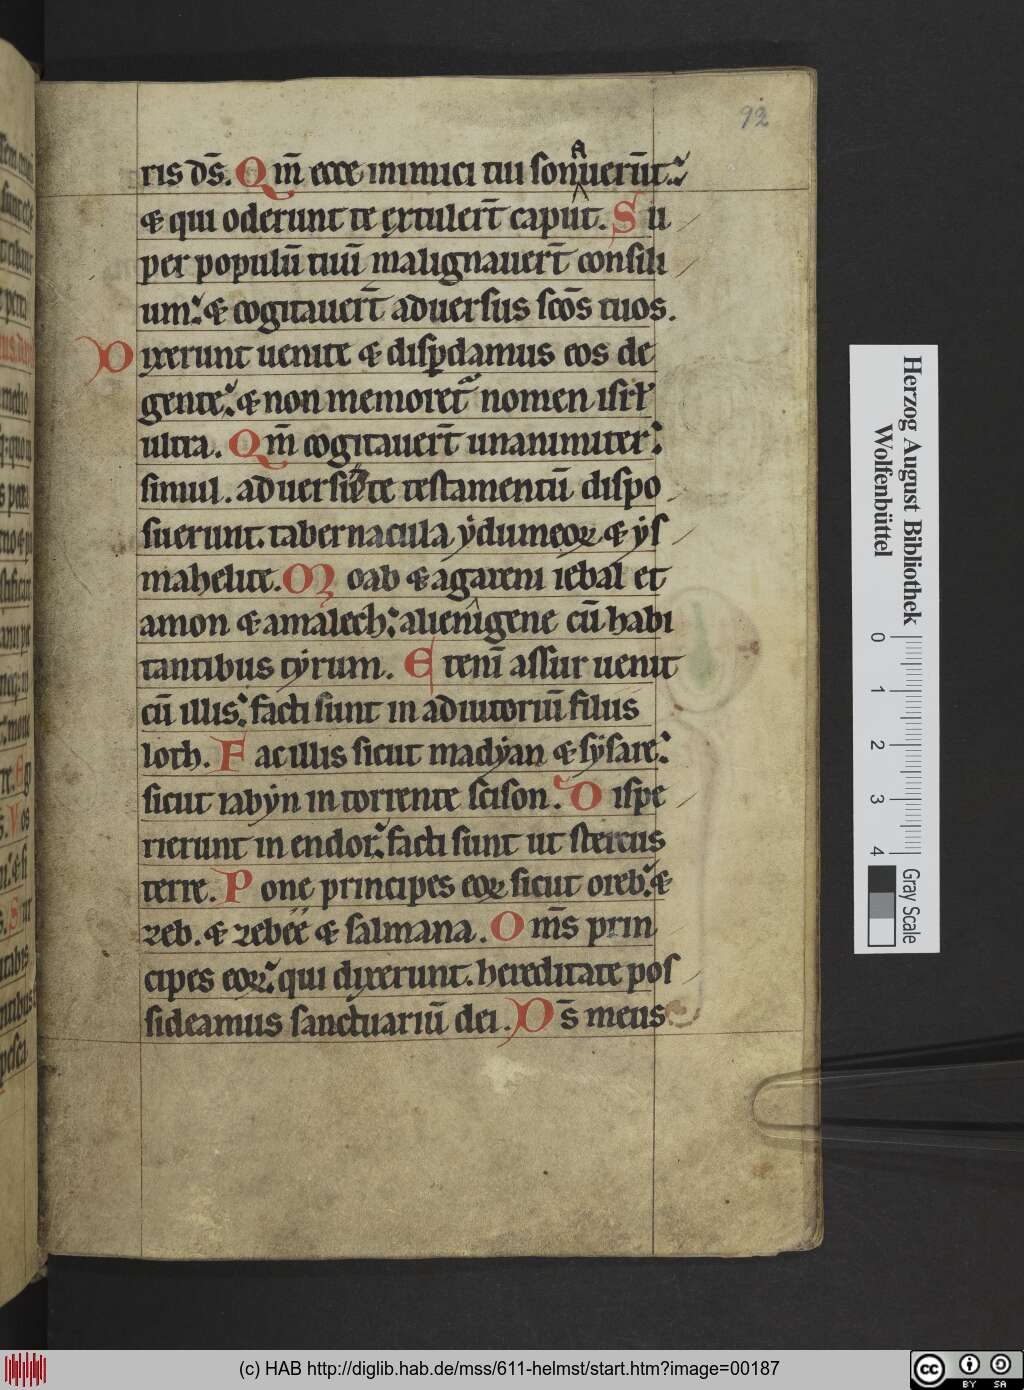 92
ris ds̄. Qm̄ ecce inimici tui sonauerūt.
& qui oderunt te extulert̄ caput. Su
per populū tuū malignauert̄ consili
um. & cogitauert̄ aduersus scōs tuos.
Dixerunt uenite & disp̱damus eos de
gente. & non memoret᷑ nomen isrł
ultra. Qm̄ cogitauert̄ unanimiter.
simul. aduersū te testamentū dispo
suerunt. tabernacula ẏdumeoꝝ & ẏs
mahelite. Moab & agareni iebal et
amon & amalech. alienigene cū habi
tantibus tẏrum. Etenī assur uenit
cū illis. facti sunt in adiutoriū filiis
loth. Fac illis sicut madẏan & sẏsare.
sicut iabẏn in torrente scison. Dispe
rierunt in endor. facti sunt ut stercus
terre. Pone principes eoꝝ sicut oreb. &
zeb. & zebeë & salmana. Oms̄ prin
cipes eoꝝ. qui dixerunt. hereditate pos
sideamus sanctuariū dei. Ds̄ meus
Herzog August Bibliothek
Wolfenbüttel
0 1 2 3 4
Gray Scale
(c) HAB http://diglib.hab.de/mss/611-helmst/start.htm?image=00187
cc BY SA